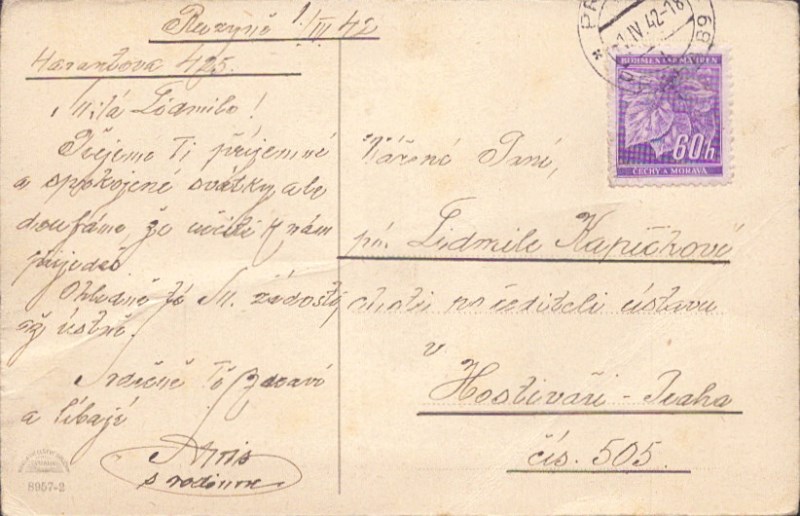 Ruzyně 1./III 42
Harantova 425.
Milá Lidmilo!
Přejeme Ti příjemné
a spokojené svátky ale
doufáme, že určitě k nám
přijedeš
Ohledně té M. žádosti,
až ústně.
Srdečně Tě zdraví
a líbají
s rodinou
8957-2
PR 89
1.IV.42-18
BÖHMEN UND MÄHREN
60h
ČECHY A MORAVA
Vážená Paní,
pí. Lidmila Kapičková
choti po řediteli ústavu
v
Hostivaři - Praha
čís. 505.